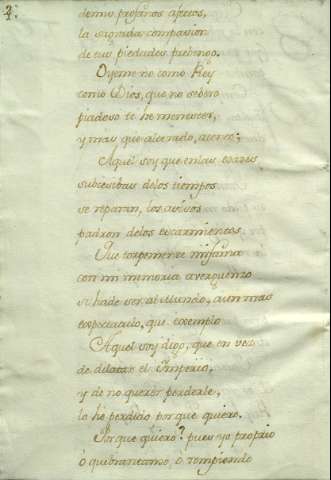 de mis profanos afectos,
la sagrada compasion
de tus piedades pretendo.
Oyeme no como Rey
como Dios, que no sebero
piadoso te he menester,
y mas que alterado, atento.
Aquel soy que en las
subcesibas de los tiempos
se reparan, los avisos
padron de los escarmientos.
Que torpemente mi fama
con mi memoria averguenzo
si hade ser al Mundo, aun mas
espectaculo, que exemplo
Aquel soy digo, que en vez
de dilatar el Imperio,
y de no querer perderle,
lo he perdido porque quiero.
Porque quiero? pues yo proprio
o quebrantando, o rompiendo